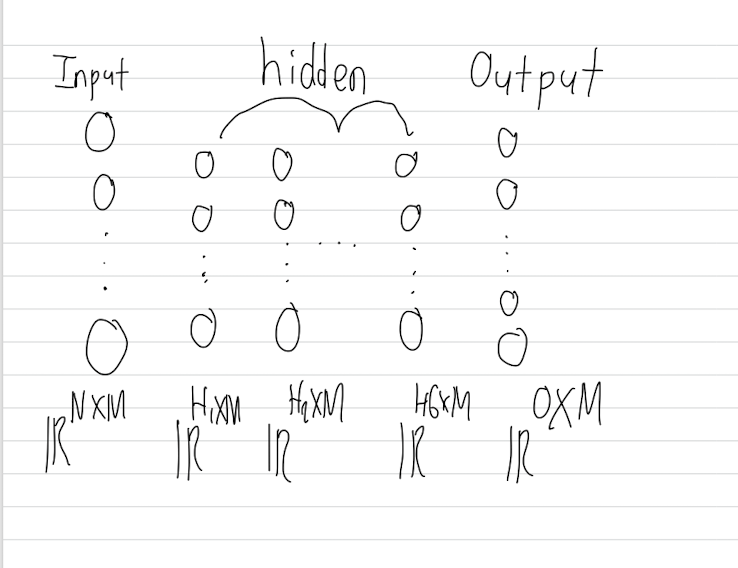 Input hidden Output
ℝ^{N×M} ℝ^{H₁×M} ℝ^{H₂×M} ℝ^{H6×M} ℝ^{O×M}